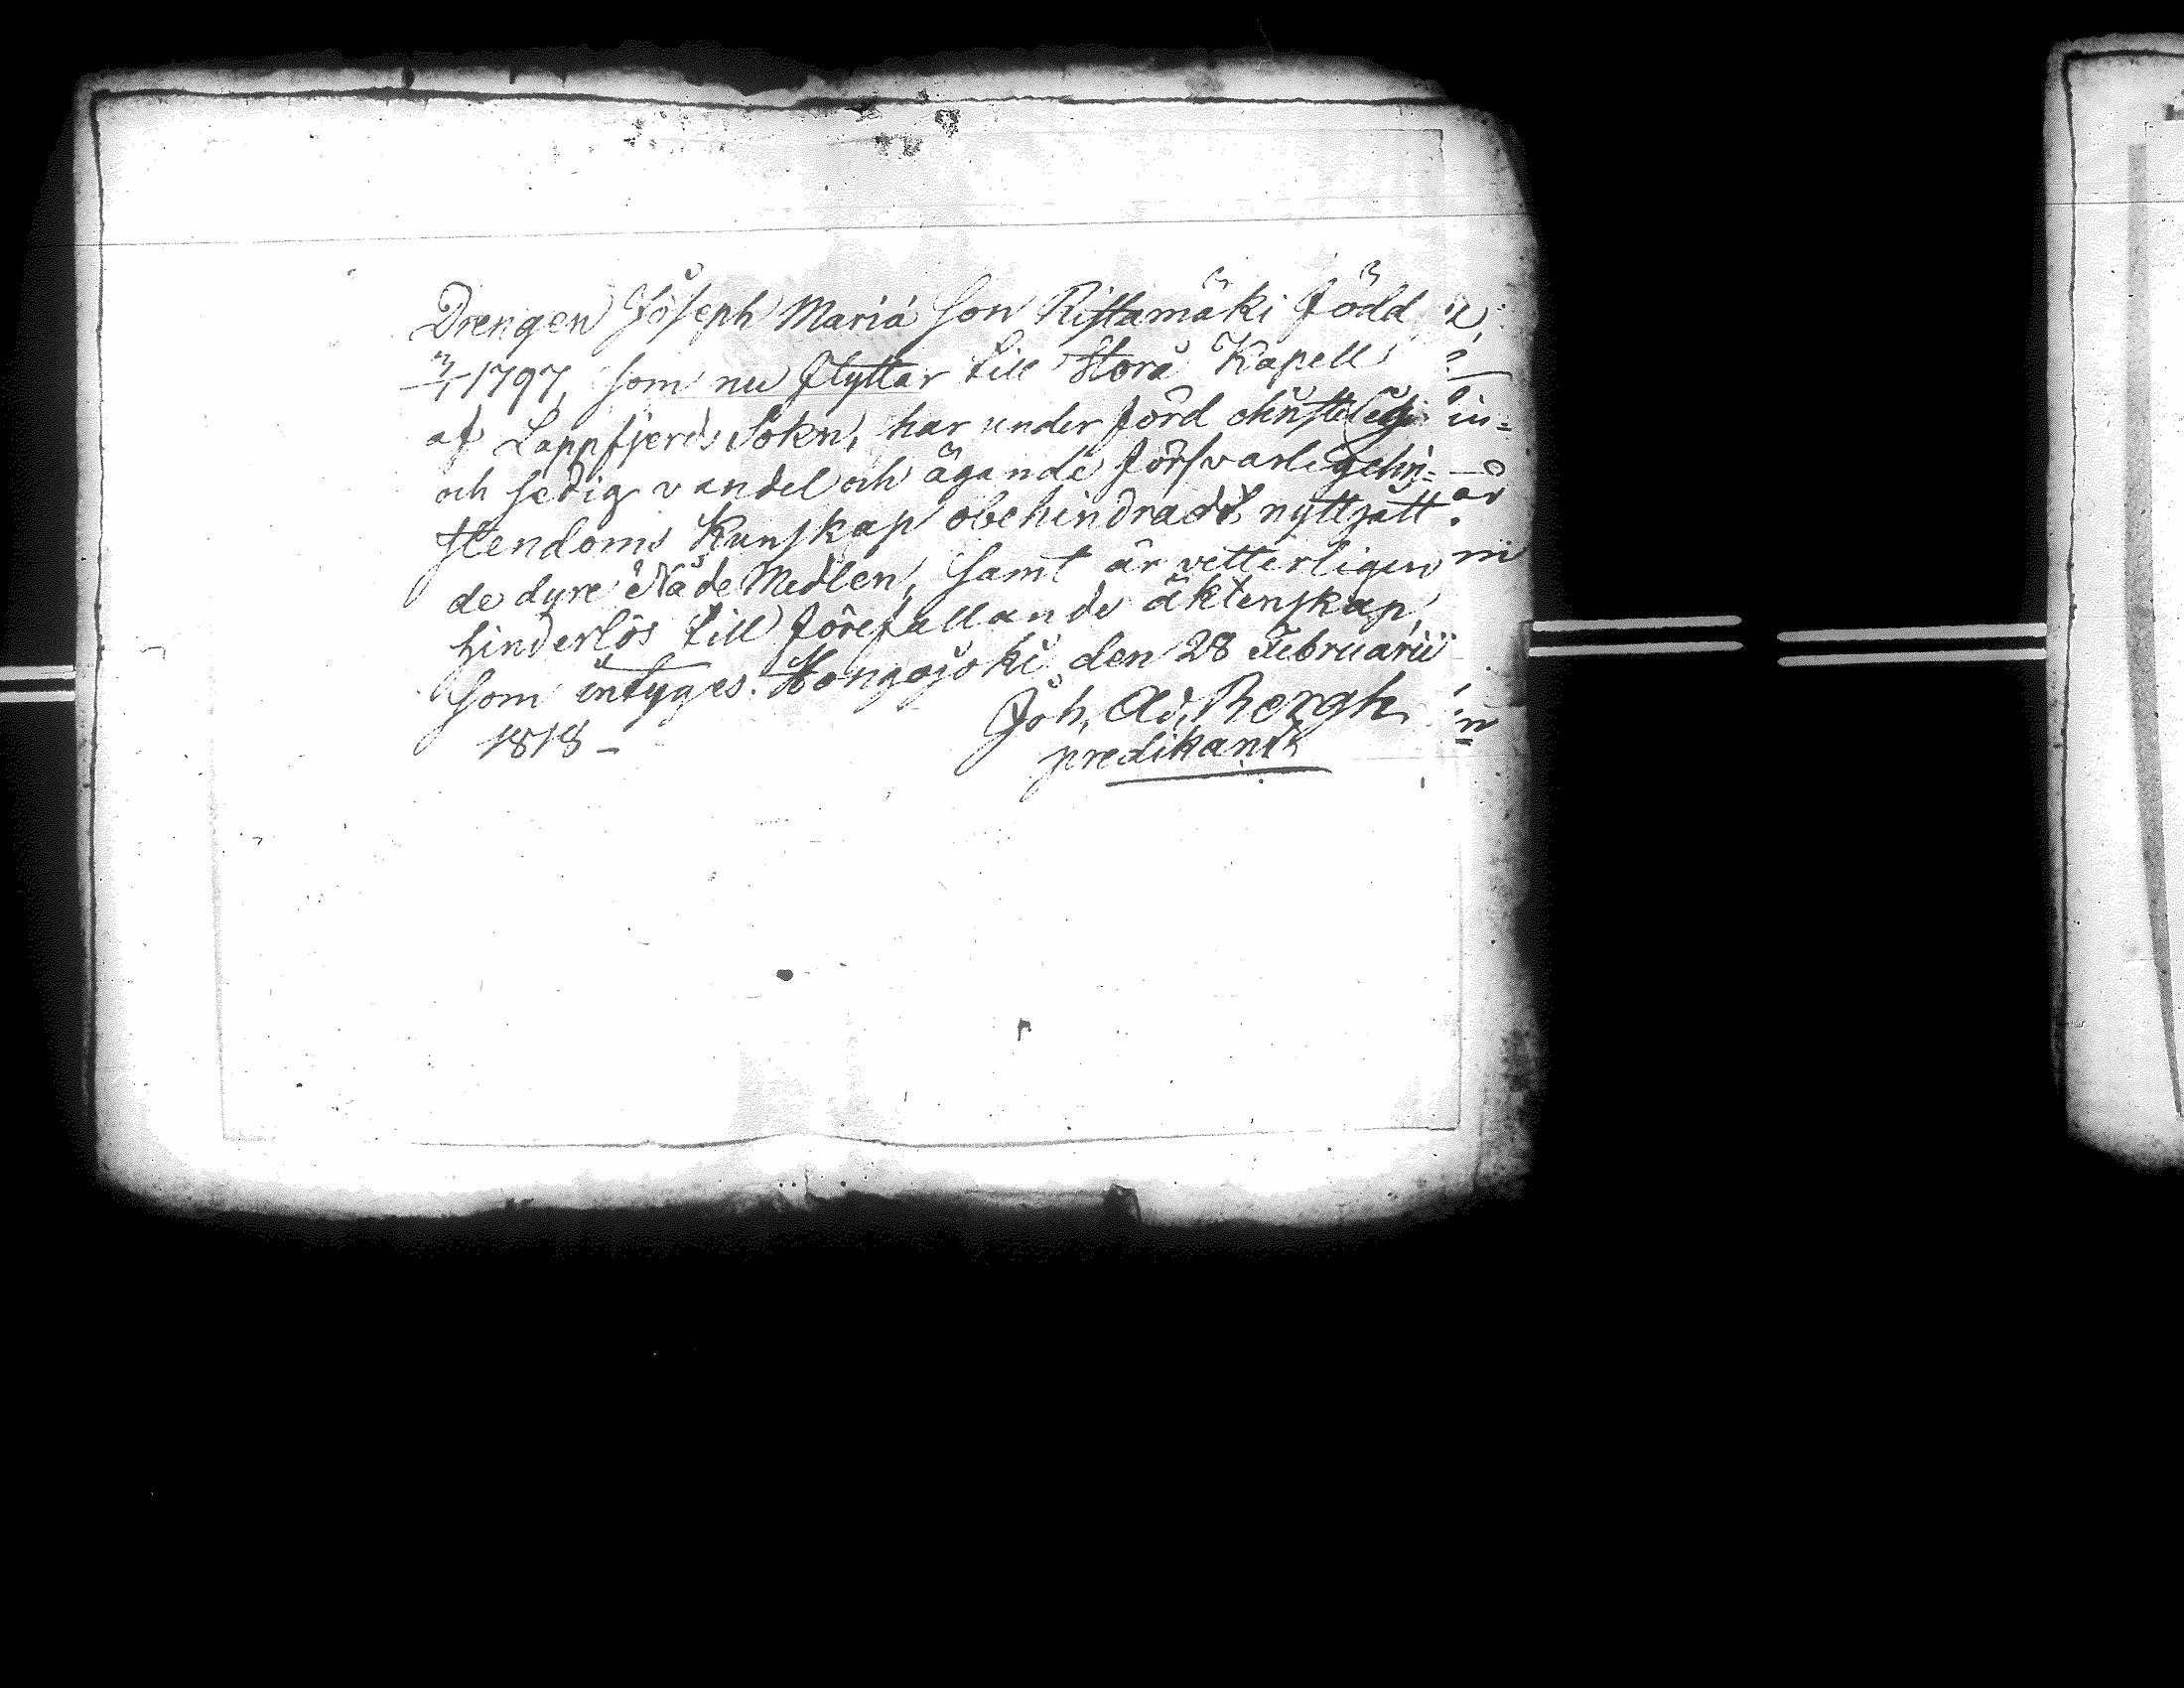 Drengen Joseph Maria Son Ristamäki född
1797, som nu flyttar till Storå Kapell
af Lappfjerds Sokn, har under förd
och sedig vandel och ägande försvarlig chri-
stendoms Kunskap obehindradt nyttjatt
de dyre Nåde Medlen, samt är vetterligen
hinderlös till förefallande äktenskap,
som intyges. Hongojoki den 28 Februarii
1818 –
Joh. Ad. Bergh
predikant